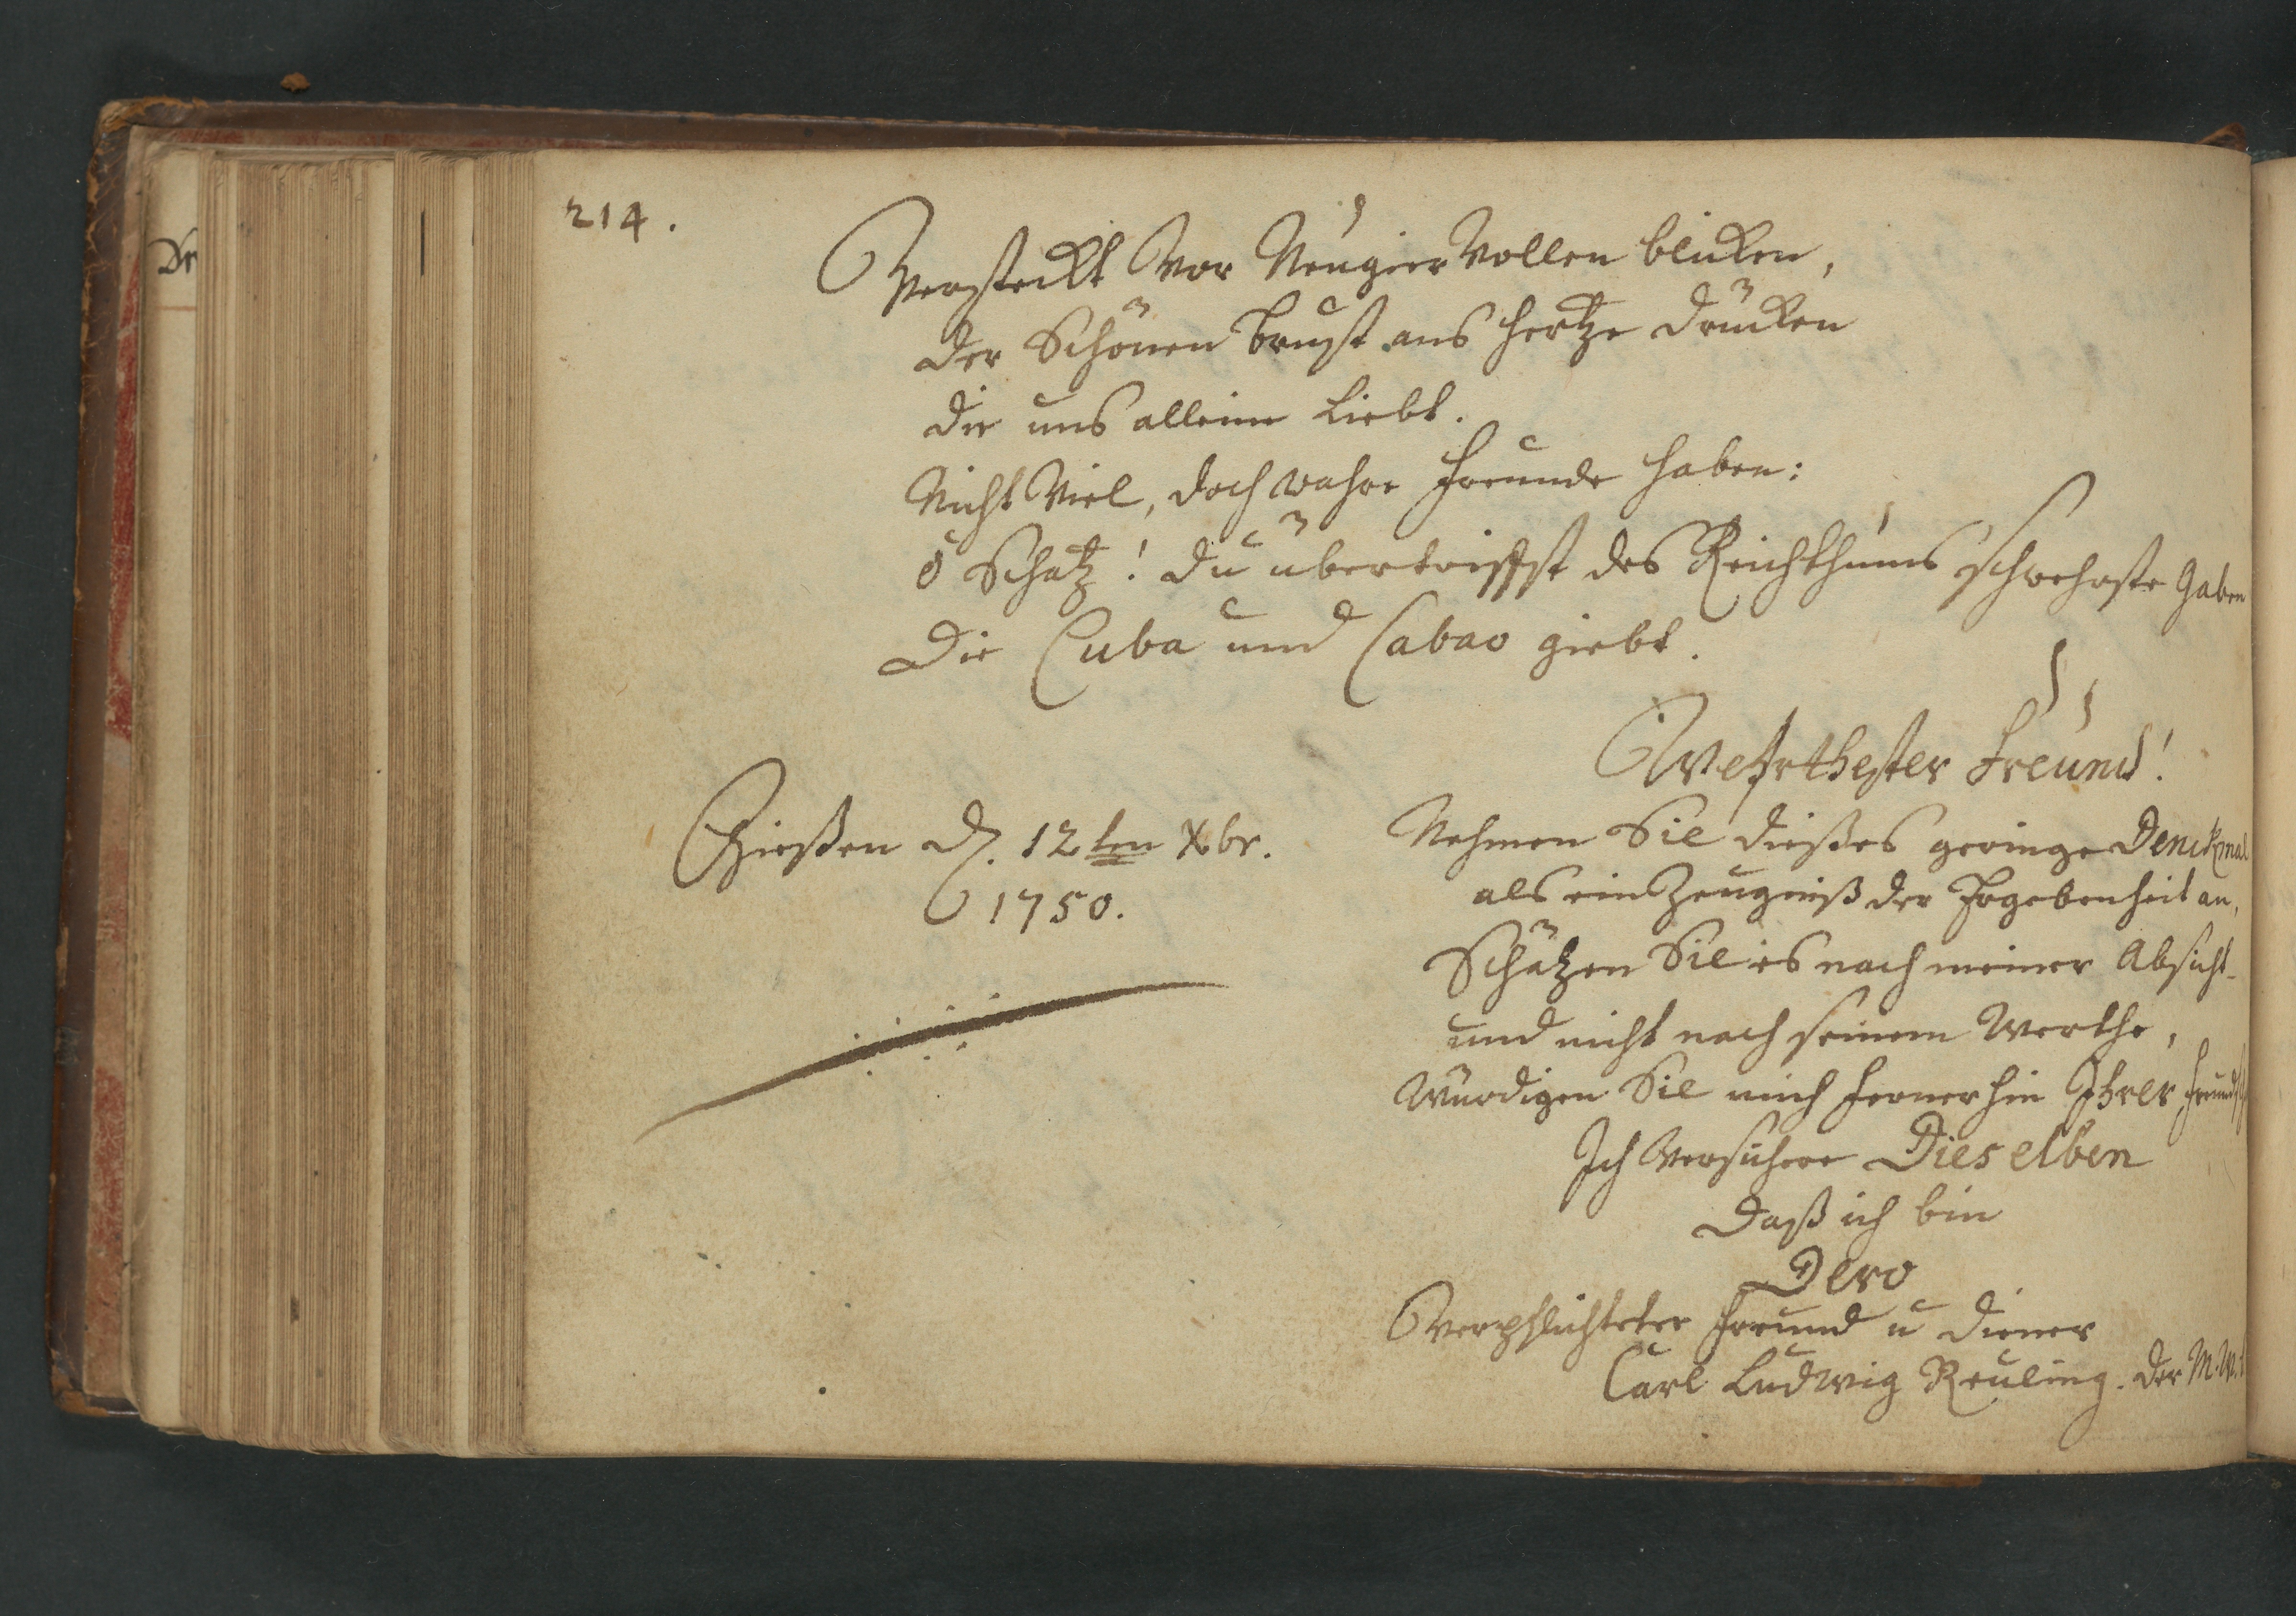 214.
Versteckt Vor Neugier Vollen blicken,
der Schönen Brust ans Hertze drücken
die uns alleine Liebt.
Nicht Viel, doch wahre Freunde haben:
ô Schatz! du übertriffst des Reichthums schwehrste Gaben
Die Cuba und Cabao giebt.
Wehrthester Freund!
Gießen d. 12ten Xbr.
1750.
Nehmen Sie dießes geringe Denckmal
als ein Zeugniß der Ergebenheit an,
Schätzen Sie es nach meiner Absicht
und nicht nach seinem Werthe,
Würdigen Sie mich fernerhin Ihrer
Ich Versichere Dieselben
Daß ich bin
Dero
Verpflichteter Freund u Diener
Carl Ludwig Reuling. der